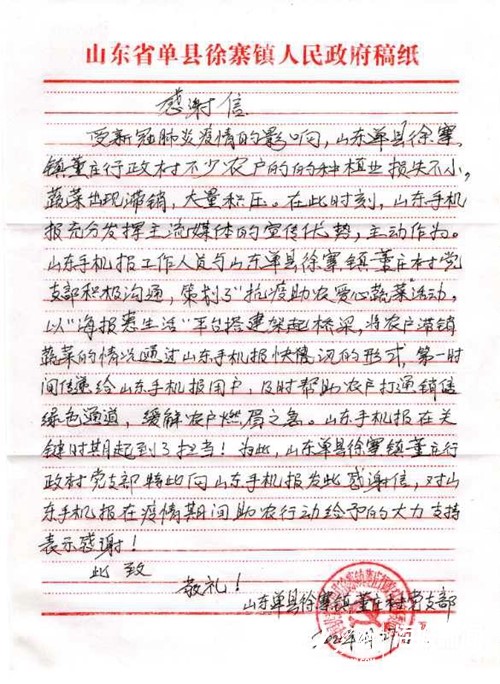 山东省单县徐寨镇人民政府稿纸
感谢信
受新冠肺炎疫情的影响，山东单县徐寨
镇董庄行政村不少农户的的种植业损失不小，
蔬菜出现滞销，大量积压。在此时刻，山东手机
报充分发挥主流媒体的宣传优势，主动作为。
山东手机报工作人员与山东单县徐寨镇董庄村党
支部积极沟通，策划了"抗疫助农爱心蔬菜"活动，
以"海报惠生活"平台搭建架起桥梁，将农户滞销
蔬菜的情况通过山东手机报快讯的形式，第一时
间传递给山东手机报用户，及时帮助农户打通销售
绿色通道，缓解农户燃眉之急。山东手机报在关
键时期起到了担当！为此，山东单县徐寨镇董庄行
政村党支部特此向山东手机报发此感谢信，对山
东手机报在疫情期间助农行动给予的大力支持
表示感谢！
此致
敬礼！
山东单县徐寨镇董庄村党支部